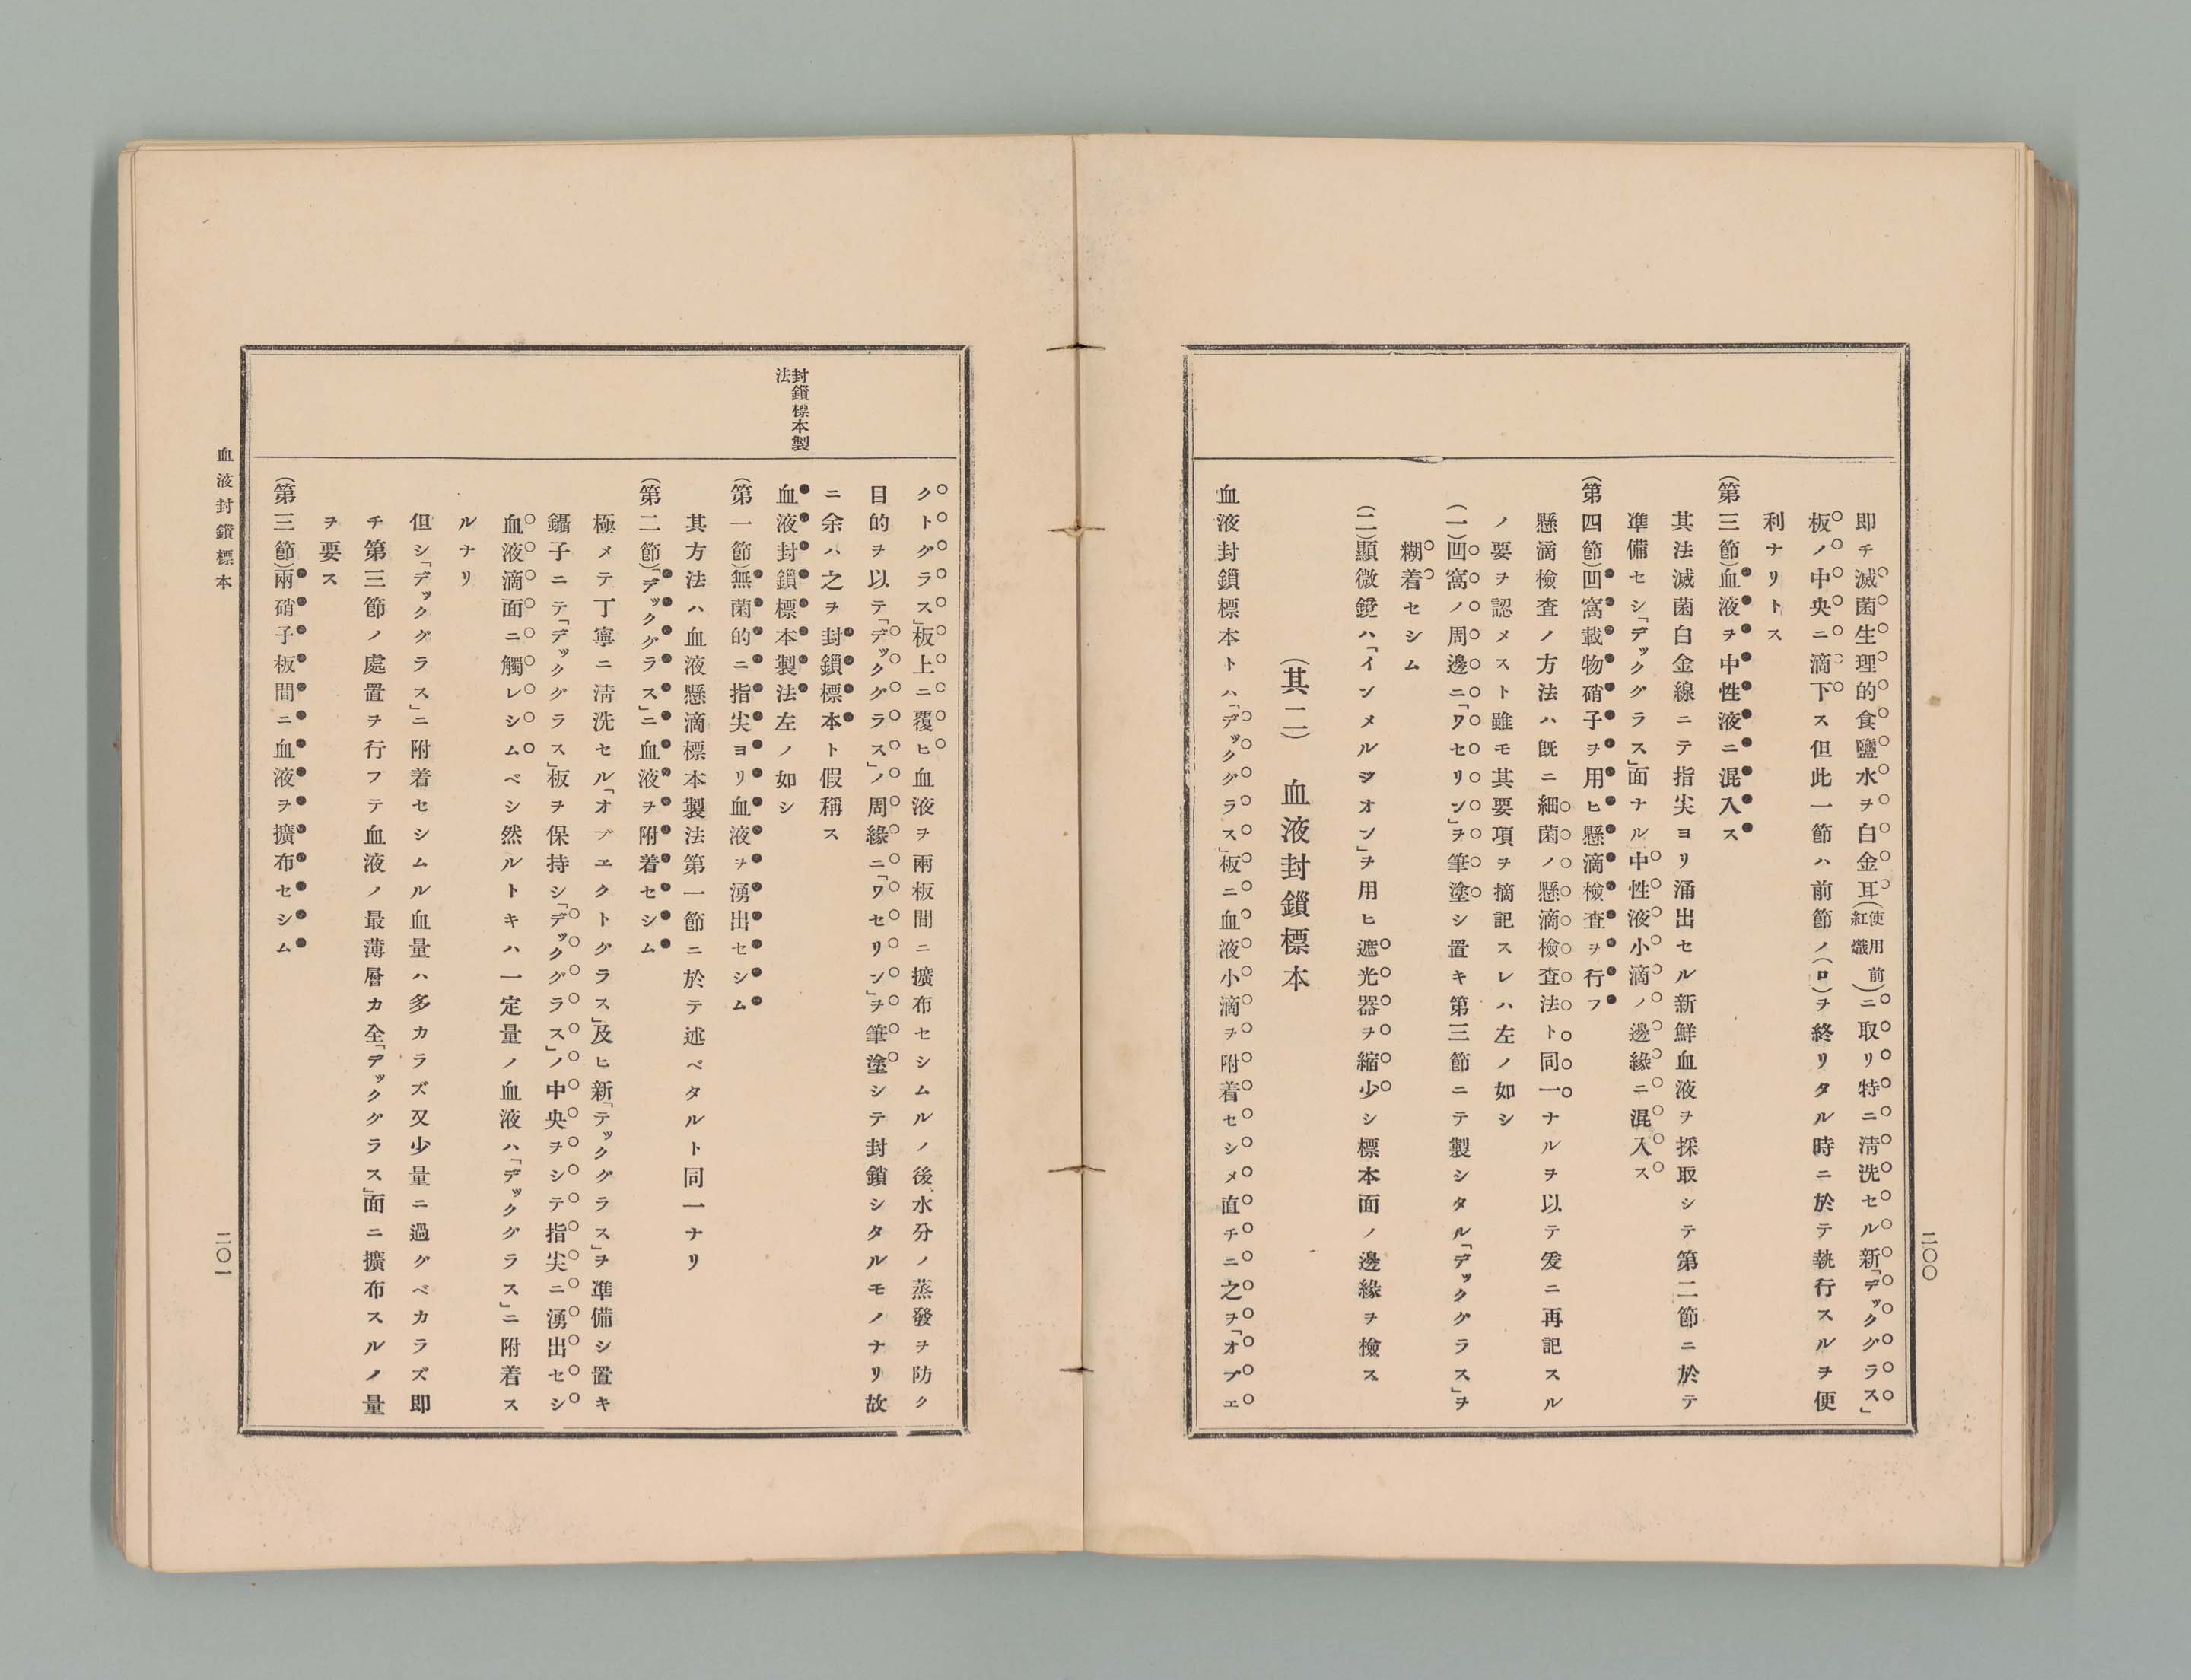 二〇〇
即チ滅菌生理的食鹽水ヲ白金耳(使用前紅熾)ニ取リ特ニ淸洗セル新「デックグラス」
板ノ中央ニ滴下ス但此一節ハ前節ノ(ロ)ヲ終リタル時ニ於テ執行スルヲ便
利ナリトス
(第三節)血液ヲ中性液ニ混入ス
其法滅菌白金線ニテ指尖ヨリ涌出セル新鮮血液ヲ採取シテ第二節ニ於テ
準備セシ「デックグラス」面ナル中性液小滴ノ邊緣ニ混入ス
(第四節)凹窩載物硝子ヲ用ヒ懸滴檢査ヲ行フ
懸滴檢査ノ方法ハ旣ニ細菌ノ懸滴檢査法ト同一ナルヲ以テ爰ニ再記スル
ノ要ヲ認メスト雖モ其要項ヲ摘記スレハ左ノ如シ
(一)凹窩ノ周邊ニ「ワセリン」ヲ筆塗シ置キ第三節ニテ製シタル「デックグラス」ヲ
糊着セシム
(二)顯微鏡ハ「インメルジオン」ヲ用ヒ遮光器ヲ縮少シ標本面ノ邊緣ヲ檢ス
(其二) 血液封鎖標本
血液封鎖標本トハ「デックグラス」板ニ血液小滴ヲ附着セシメ直チニ之ヲ「オブエ
クトグラス」板上ニ覆ヒ血液ヲ兩板間ニ擴布セシムルノ後、水分ノ蒸發ヲ防ク
目的ヲ以テ「デックグラス」ノ周緣ニ「ワセリン」ヲ筆塗シテ封鎖シタルモノナリ故
ニ余ハ之ヲ封鎖標本ト假稱ス
封鎖標本製
法
血液封鎖標本製法左ノ如シ
(第一節)無菌的ニ指尖ヨリ血液ヲ湧出セシム
其方法ハ血液懸滴標本製法第一節ニ於テ述ベタルト同一ナリ
(第二節)「デックグラス」ニ血液ヲ附着セシム
極メテ丁寧ニ淸洗セル「オブエクトグラス」及ヒ新「テックグラス」ヲ準備シ置キ
鑷子ニテ「デックグラス」板ヲ保持シ「デックグラス」ノ中央ヲシテ指尖ニ湧出セシ
血液滴面ニ觸レシムベシ然ルトキハ一定量ノ血液ハ「デックグラス」ニ附着ス
ルナリ
但シ「デックグラス」ニ附着セシムル血量ハ多カラズ又少量ニ過グベカラズ即
チ第三節ノ處置ヲ行フテ血液ノ最薄層カ全「デックグラス」面ニ擴布スルノ量
ヲ要ス
(第三節)兩硝子板間ニ血液ヲ擴布セシム
血液封鎖標本
二〇一